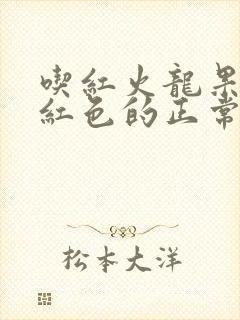 喫紅火龍果
紅色的正常
松本大洋